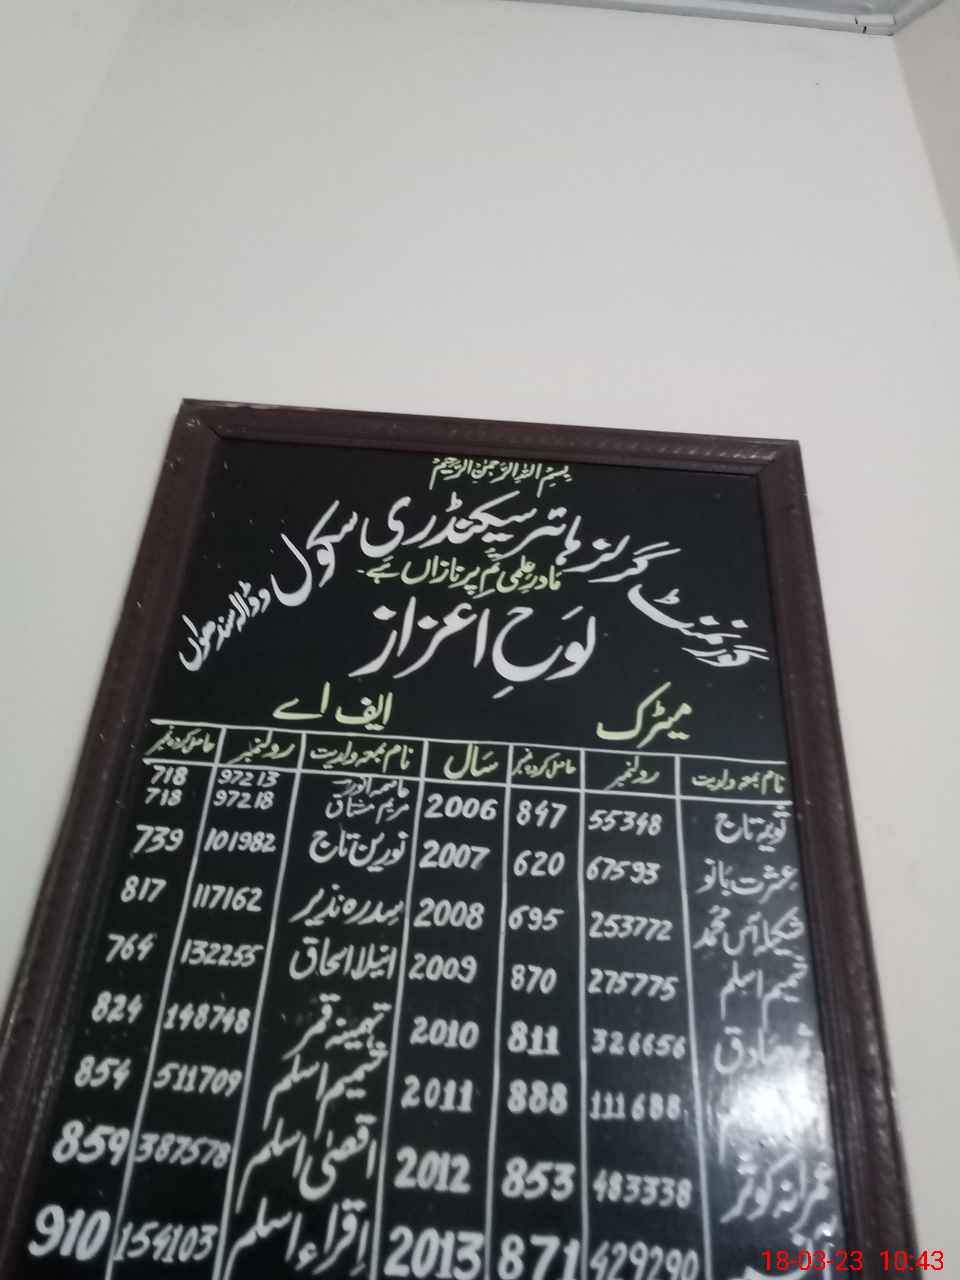 بسم اللہ الرحمن الرحیم
گورنمنٹ گرلز ہائر سیکنڈری سکول وڈالہ سندھواں
مادرِ علمی تم پر نازاں ہے
لوحِ اعزاز
میٹرک ایف اے
نام بمعہ ولدیت رولنمبر حاصل کردہ نمبر سال نام بمعہ ولدیت رولنمبر حاصل کردہ نمبر
ثوبیہ تاج 55348 847 2006 عاصمہ انور 97213 718
مریم مشتاق 97218 718
عشرت بانو 67593 620 2007 نورین تاج 101982 739
شکیلہ الس محمد 253772 695 2008 سدرہ نذیر 117162 817
شمیم اسلم 275775 870 2009 انیلا اسحاق 132255 764
صادق 326656 811 2010 تہمینہ قمر 148748 824
111688 888 2011 شمیم اسلم 511709 854
کوثر 483338 853 2012 اقصیٰ اسلم 387578 859
429290 871 2013 اقراء اسلم 154103 910
18-03-23 10:43